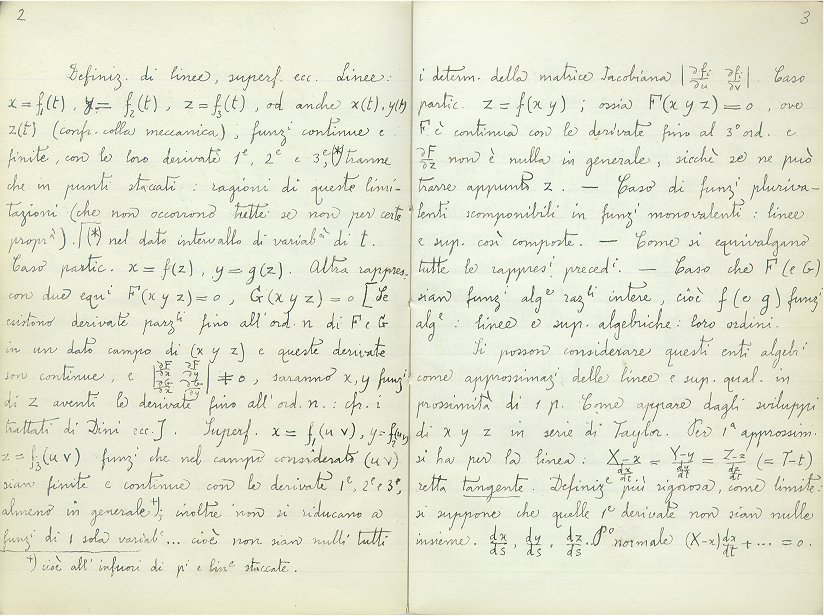 2
Definiz. di linee, superf. ecc. Linee:
x = f₁(t), y = f₂(t), z = f₃(t), od anche x(t), y(t)
z(t) (confr. colla meccanica), funzⁱ continue e
finite, con le loro derivate 1ᵉ, 2ᵉ e 3ᵉ, (*) tranne
che in punti staccati: ragioni di queste limi-
tazioni (che non occorrono tutte se non per certe
proprᵃ̀). [(*) nel dato intervallo di variabᵃ̀ di t.
Caso partic. x = f(z), y = g(z). Altra rappres.
con due equⁱ F(x y z) = 0, G(x y z) = 0 [Se
esistono derivate parzˡⁱ fino all'ord. n di F e G
in un dato campo di (x y z) e queste derivate
son continue, e |∂F/∂x ∂F/∂y ∂G/∂x ∂G/∂y| ≠ 0, saranno x, y funzⁱ
di z aventi le derivate fino all'ord. n.: cfr. i
trattati di Dini ecc.]. Superf. x = f₁(u v), y = f₂(u v)
z = f₃(u v) funzⁱ che nel campo considerato (u v)
sian finite e continue con le derivate 1ᵉ, 2ᵉ e 3ᵉ,
almeno in generale †); inoltre non si riducano a
funzⁱ di 1 sola variabⁱ ... cioè non sian nulli tutti
†) cioè all'infuori di pⁱ e linᵉ staccate.
3
i determ. della matrice Jacobiana |∂fᵢ/∂u ∂fᵢ/∂v|. Caso
partic. z = f(x y); ossia F(x y z) = 0, ove
F è continua con le derivate fino al 3° ord. e
∂F/∂z non è nulla in generale, sicchè se ne può
trarre appunto z. — Caso di funzⁱ pluriva-
lenti scomponibili in funzⁱ monovalenti: linee
e sup. così composte. — Come si equivalgano
tutte le rappresⁱ precedⁱ. — Caso che F (e G)
sian funzⁱ algᵉ razˡⁱ intere, cioè f (e g) funzⁱ
algᵉ: linee e sup. algebriche: loro ordini.
Si posson considerare questi enti algebⁱ
come approssimazⁱ delle linee e sup. qual. in
prossimità di 1 p. Come appare dagli sviluppi
di x y z in serie di Taylor. Per 1ᵃ approssim.
si ha per la linea: X-x/dx/dt = Y-y/dy/dt = Z-z/dz/dt (= T-t)
retta tangente. Definizᵉ più rigorosa, come limite:
si suppone che quelle 1ᵉ derivate non sian nulle
insieme. dx/ds, dy/ds, dz/ds. Pº normale (X-x) dx/dt + ... = 0.